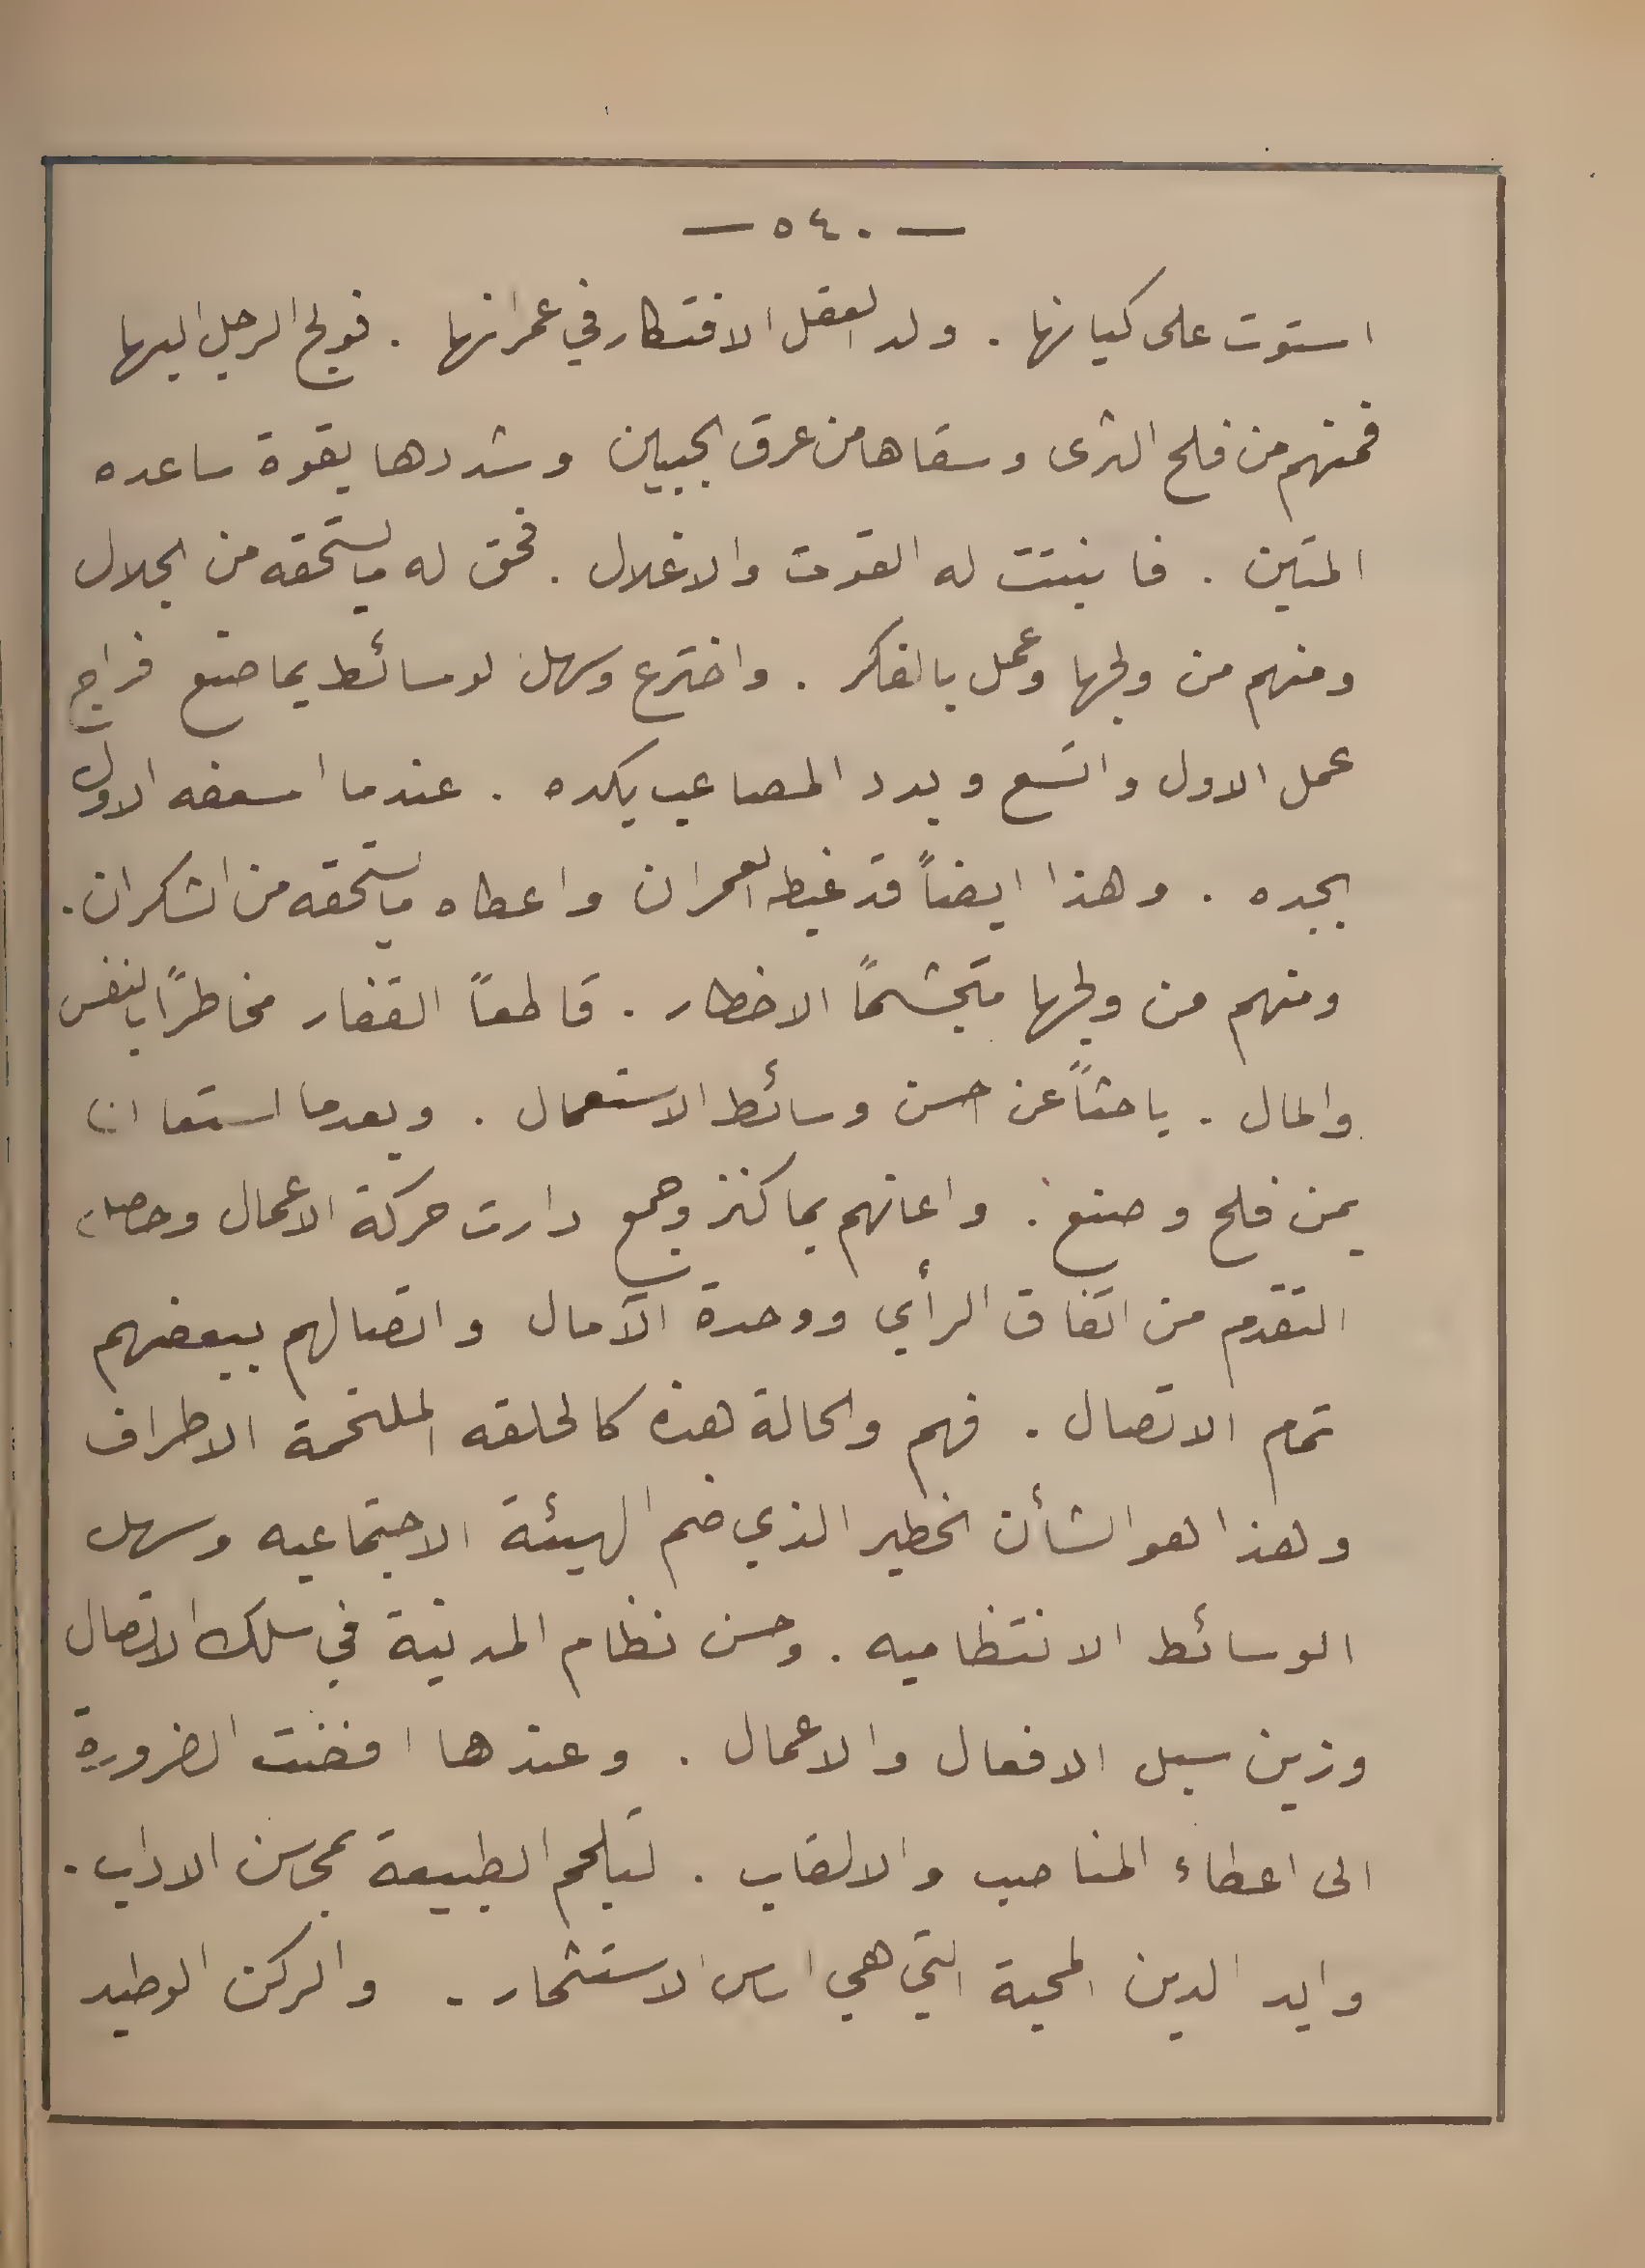 — ٥٤٠ —
استوت على كيانها . ولد العقل الافتكار في عمرانها . فولج الرجل اليها
فمنهم من فلح الثرى وسقاها من عرق الجبين وشددها بقوة ساعده
المتين . فانبتت له القوت والاغلال . فحق له ما يستحقه من الجلال
ومنهم من ولجها وعمل بالفكر . واخترع وسهل لوسائط بما صنع فراج
عمل الاول واتسع وبدد المصاعب بكده . عندما اسعفه الاول
بجده . وهذا ايضاً قد غبطه العمران واعطاه ما يستحقه من الشكران .
ومنهم من ولجها متجشماً الاخطار . قاطعاً القفار مخاطراً بالنفس
والمال . باحثاً عن احسن وسائط الاستعمال . وبعدما استعان
بمن فلح وصنع . واعانهم بما كنز وجمع دارت حركة الاعمال وحصل
التقدم من اتفاق الرأي ووحدة الآمال واتصالهم ببعضهم
تمام الاتصال . فهم والحالة هذه كالحلقه الملتحمة الاطراف
وهذا هو الشأن الخطير الذي ضم الهيئة الاجتماعيه وسهل
الوسائط الانتظاميه . وحسن نظام المدنية في سلك الاتصال
وزين سبل الافعال والاعمال . وعندها افضت الضرورة
الى اعطاء المناصب والالقاب . لتلحم الطبيعة بمحاسن الاداب .
وايد الدين المحبة التي هي اساس الاستثمار . والركن الوطيد